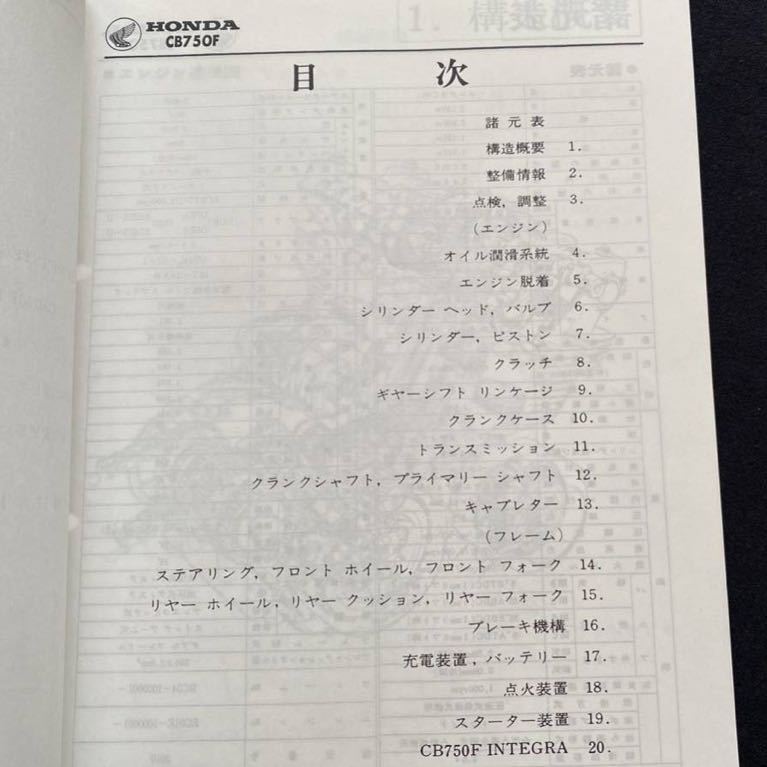 HONDA
CB750F
目次
諸元表
構造概要 1.
整備情報 2.
点検, 調整 3.
(エンジン)
オイル潤滑系統 4.
エンジン脱着 5.
シリンダー ヘッド, バルブ 6.
シリンダー, ピストン 7.
クラッチ 8.
ギヤーシフト リンケージ 9.
クランクケース 10.
トランスミッション 11.
クランクシャフト, プライマリー シャフト 12.
キャブレター 13.
(フレーム)
ステアリング, フロント ホイール, フロント フォーク 14.
リヤー ホイール, リヤー クッション, リヤー フォーク 15.
ブレーキ機構 16.
充電装置, バッテリー 17.
点火装置 18.
スターター装置 19.
CB750F INTEGRA 20.